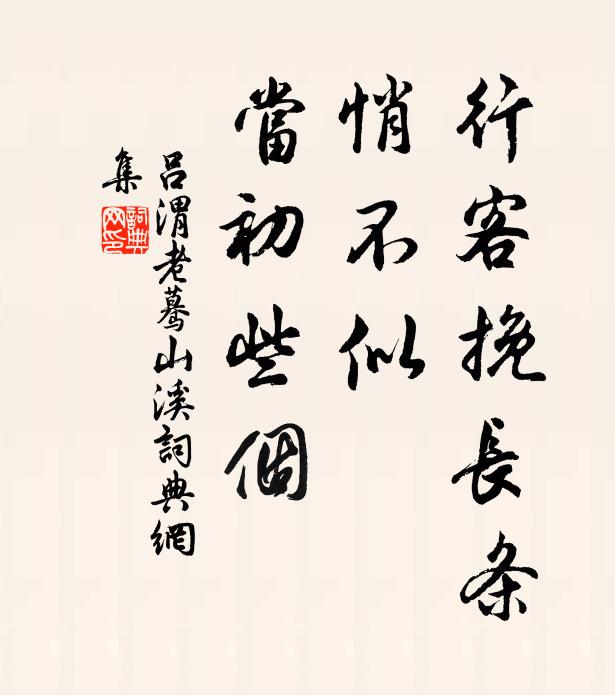 行客挽長条
悄不似
當初些個
吕渭老蓦山溪詞典網
集
詞典网印